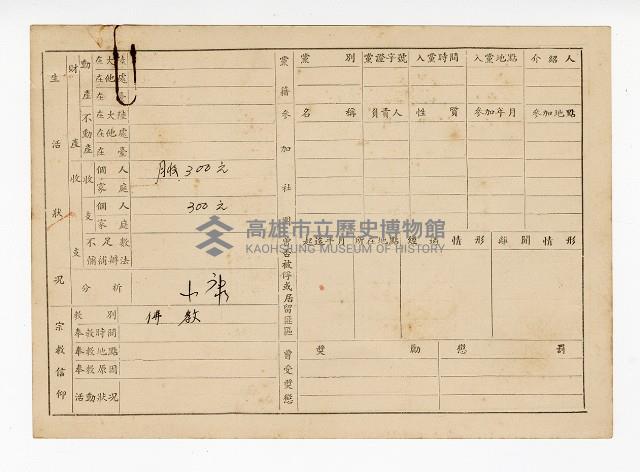 生活狀況
財產
動產
在大陸
在他處
在臺
不動產
在大陸
在他處
在臺
收支
收
個人
家庭
月收300元
支
個人
家庭
300元
不足數
彌補辦法
分析
小康
宗教信仰
教別
佛教
奉教時間
奉教地點
奉教原因
活動狀況
黨籍
黨別 黨證字號 入黨時間 入黨地點 介紹人
參加社團
名稱 負責人 性質 參加年月 參加地點
曾否被俘或居留匪區
起迄年月 所在地點 經過情形 離開情形
曾受獎懲
獎勵 懲罰
高雄市立歷史博物館
KAOHSIUNG MUSEUM OF HISTORY